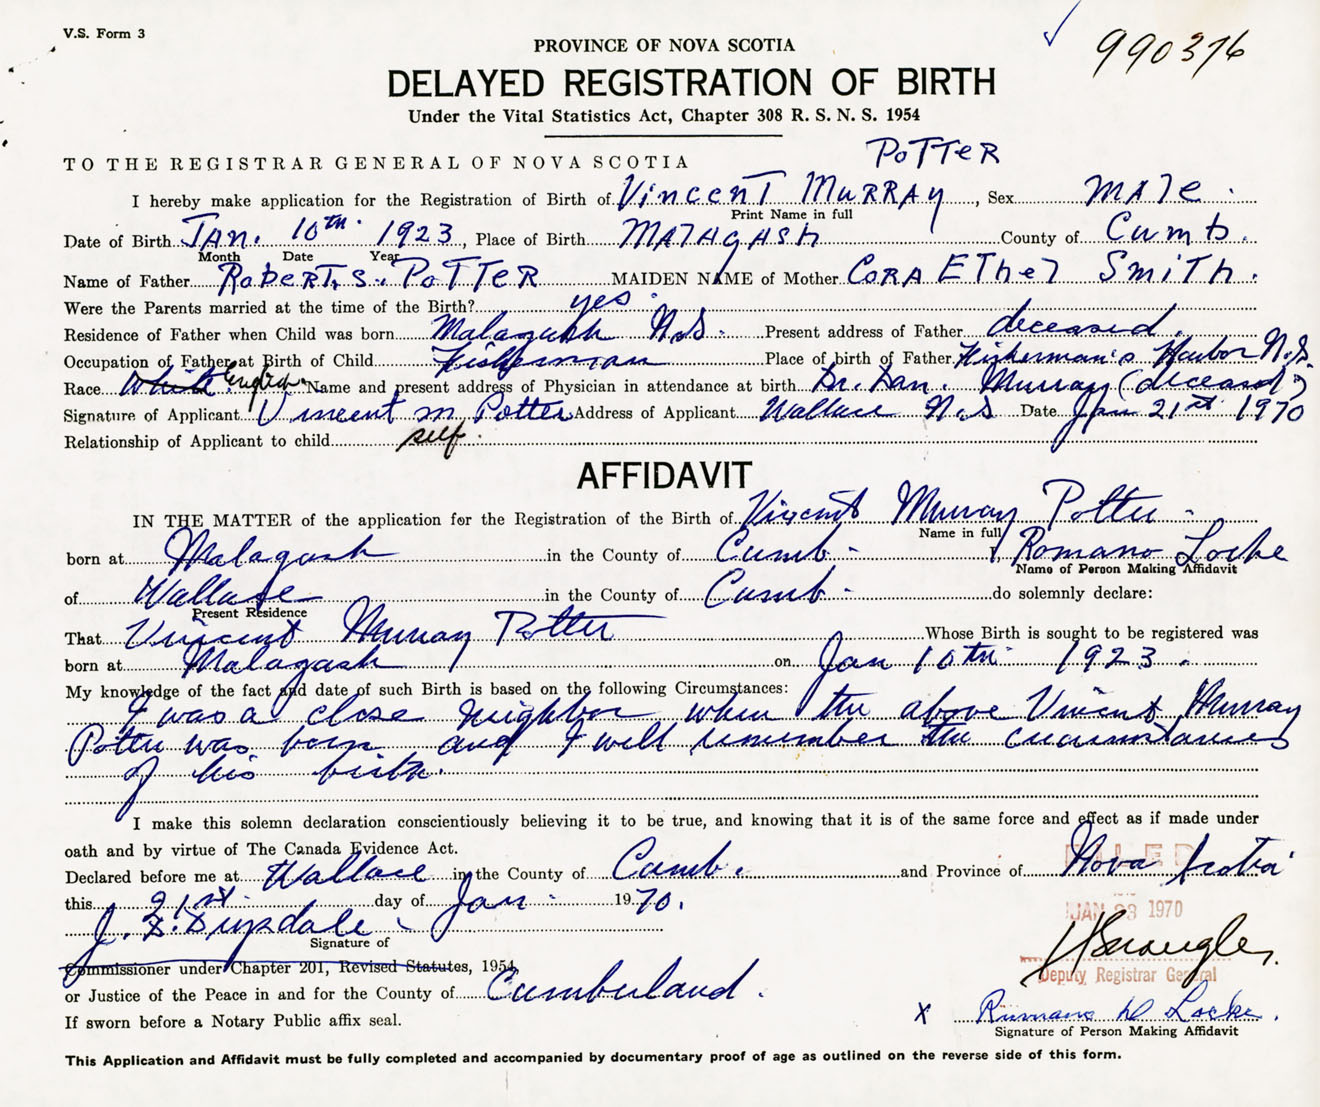 V.S. Form 3
990376
PROVINCE OF NOVA SCOTIA
DELAYED REGISTRATION OF BIRTH
Under the Vital Statistics Act, Chapter 308 R. S. N. S. 1954
TO THE REGISTRAR GENERAL OF NOVA SCOTIA
POTTER
I hereby make application for the Registration of Birth of Vincent Murray, Sex Male
Print Name in full
Date of Birth Jan. 10th 1923, Place of Birth Malagash County of Cumb.
Month Date Year
Name of Father Robert S. Potter MAIDEN NAME of Mother Cora Ethel Smith.
Were the Parents married at the time of the Birth? yes
Residence of Father when Child was born Malagash N.S. Present address of Father deceased.
Occupation of Father at Birth of Child Fisherman Place of birth of Father Fisherman's Harbor N.S.
Race White English Name and present address of Physician in attendance at birth Dr. Dan. Murray (deceased)
Signature of Applicant Vincent M Potter Address of Applicant Wallace N.S Date Jan 21st 1970
Relationship of Applicant to child self.
AFFIDAVIT
IN THE MATTER of the application for the Registration of the Birth of Vincent Murray Potter
Name in full
born at Malagash in the County of Cumb. I, Romano Locke
Name of Person Making Affidavit
of Wallace in the County of Cumb. do solemnly declare:
Present Residence
That Vincent Murray Potter Whose Birth is sought to be registered was
born at Malagash on Jan 10th 1923.
My knowledge of the fact and date of such Birth is based on the following Circumstances:
I was a close neighbor when the above Vincent Murray
Potter was born and I well remember the circumstances
of his birth.
I make this solemn declaration conscientiously believing it to be true, and knowing that it is of the same force and effect as if made under
oath and by virtue of The Canada Evidence Act.
Declared before me at Wallace in the County of Cumb. and Province of Nova Scotia
FILED
this 21st day of Jan 1970.
JAN 23 1970
Signature of
Commissioner under Chapter 201, Revised Statutes, 1954,
Deputy Registrar General
or Justice of the Peace in and for the County of Cumberland.
X Romano D Locke.
If sworn before a Notary Public affix seal.
Signature of Person Making Affidavit
This Application and Affidavit must be fully completed and accompanied by documentary proof of age as outlined on the reverse side of this form.